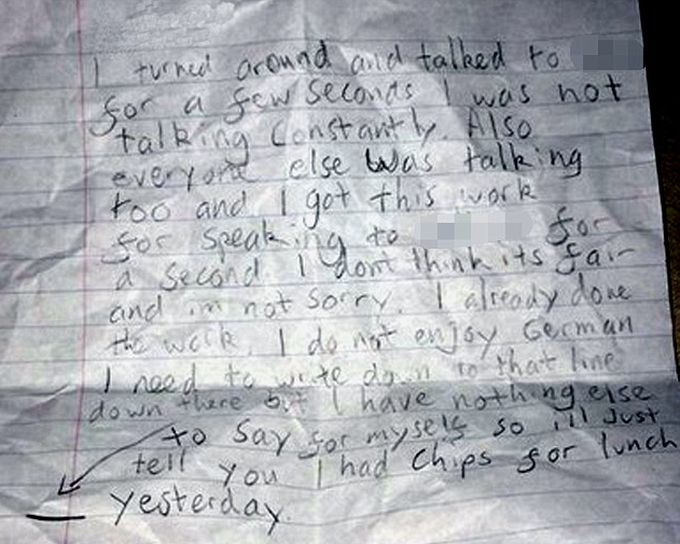 I turned around and talked to
for a few seconds I was not
talking constantly. Also
everyone else was talking
too and I got this work
for speaking to for
a second. I dont think its fair
and im not sorry. I already done
the work. I do not enjoy German
I need to write down to that line
down there but I have nothing else
to say for myself so ill Just
tell you I had Chips for lunch
yesterday.